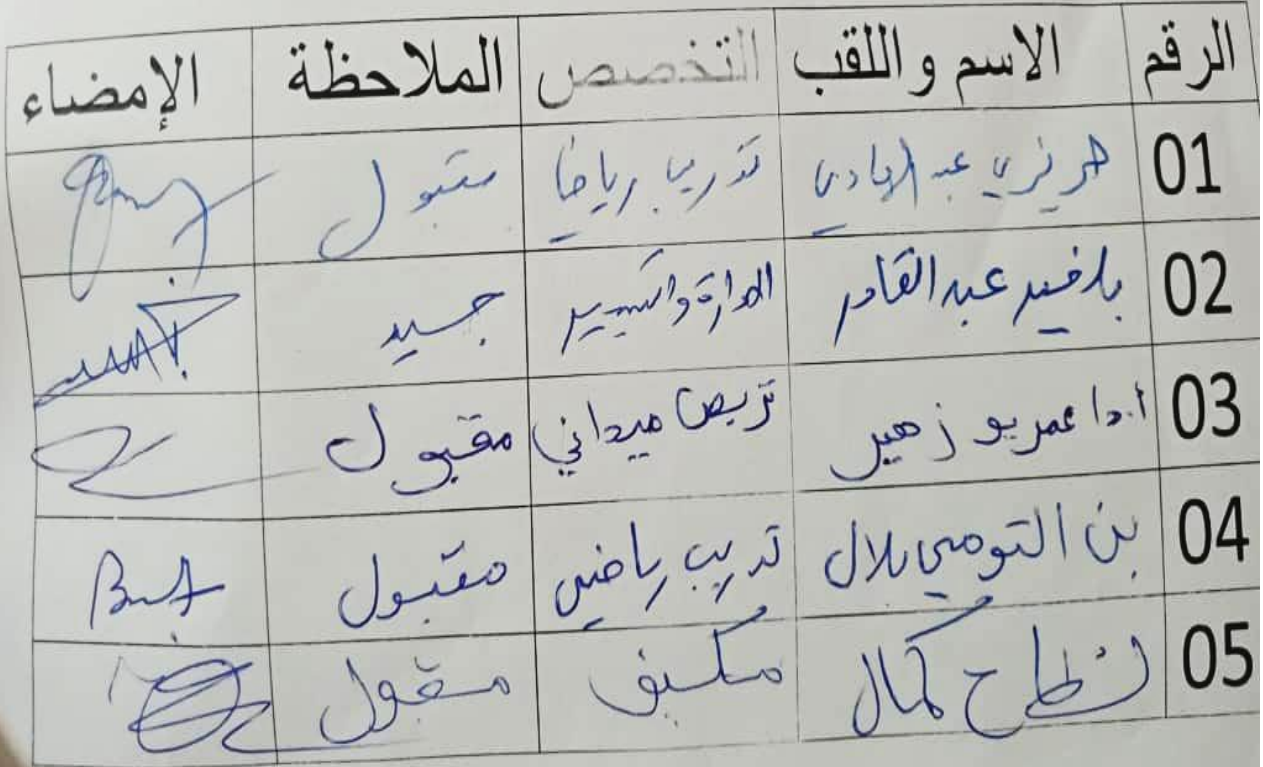 الرقم الاسم واللقب التخصص الملاحظة الإمضاء
01 عبد الهادي تدريب رياضي مقبول
02 بلقيدر عبد القادر الإدارة والتسيير جيد
03 أ.د/ عمريو زهير تربص ميداني مقبول
04 بن التومي بلال تدريب رياضي مقبول
05 نطاح كمال مكيف مقبول